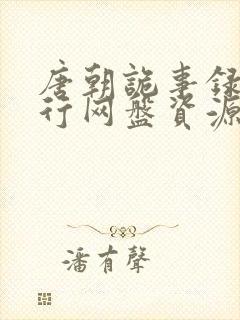 唐朝詭事錄
行网盤資源
潘有聲